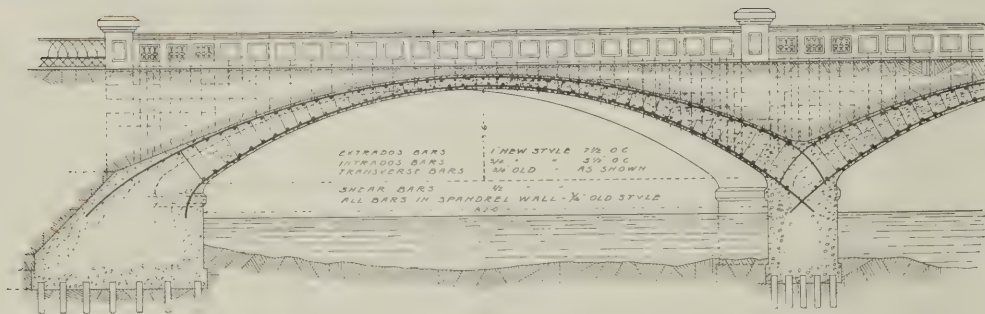 EXTRADOS BARS 1 NEW STYLE 7½ O C
INTRADOS BARS ¾ " " 5½ O C
TRANSVERSE BARS OLD " AS SHOWN
SHEAR BARS ½ " "
ALL BARS IN SPANDREL WALL - OLD STYLE